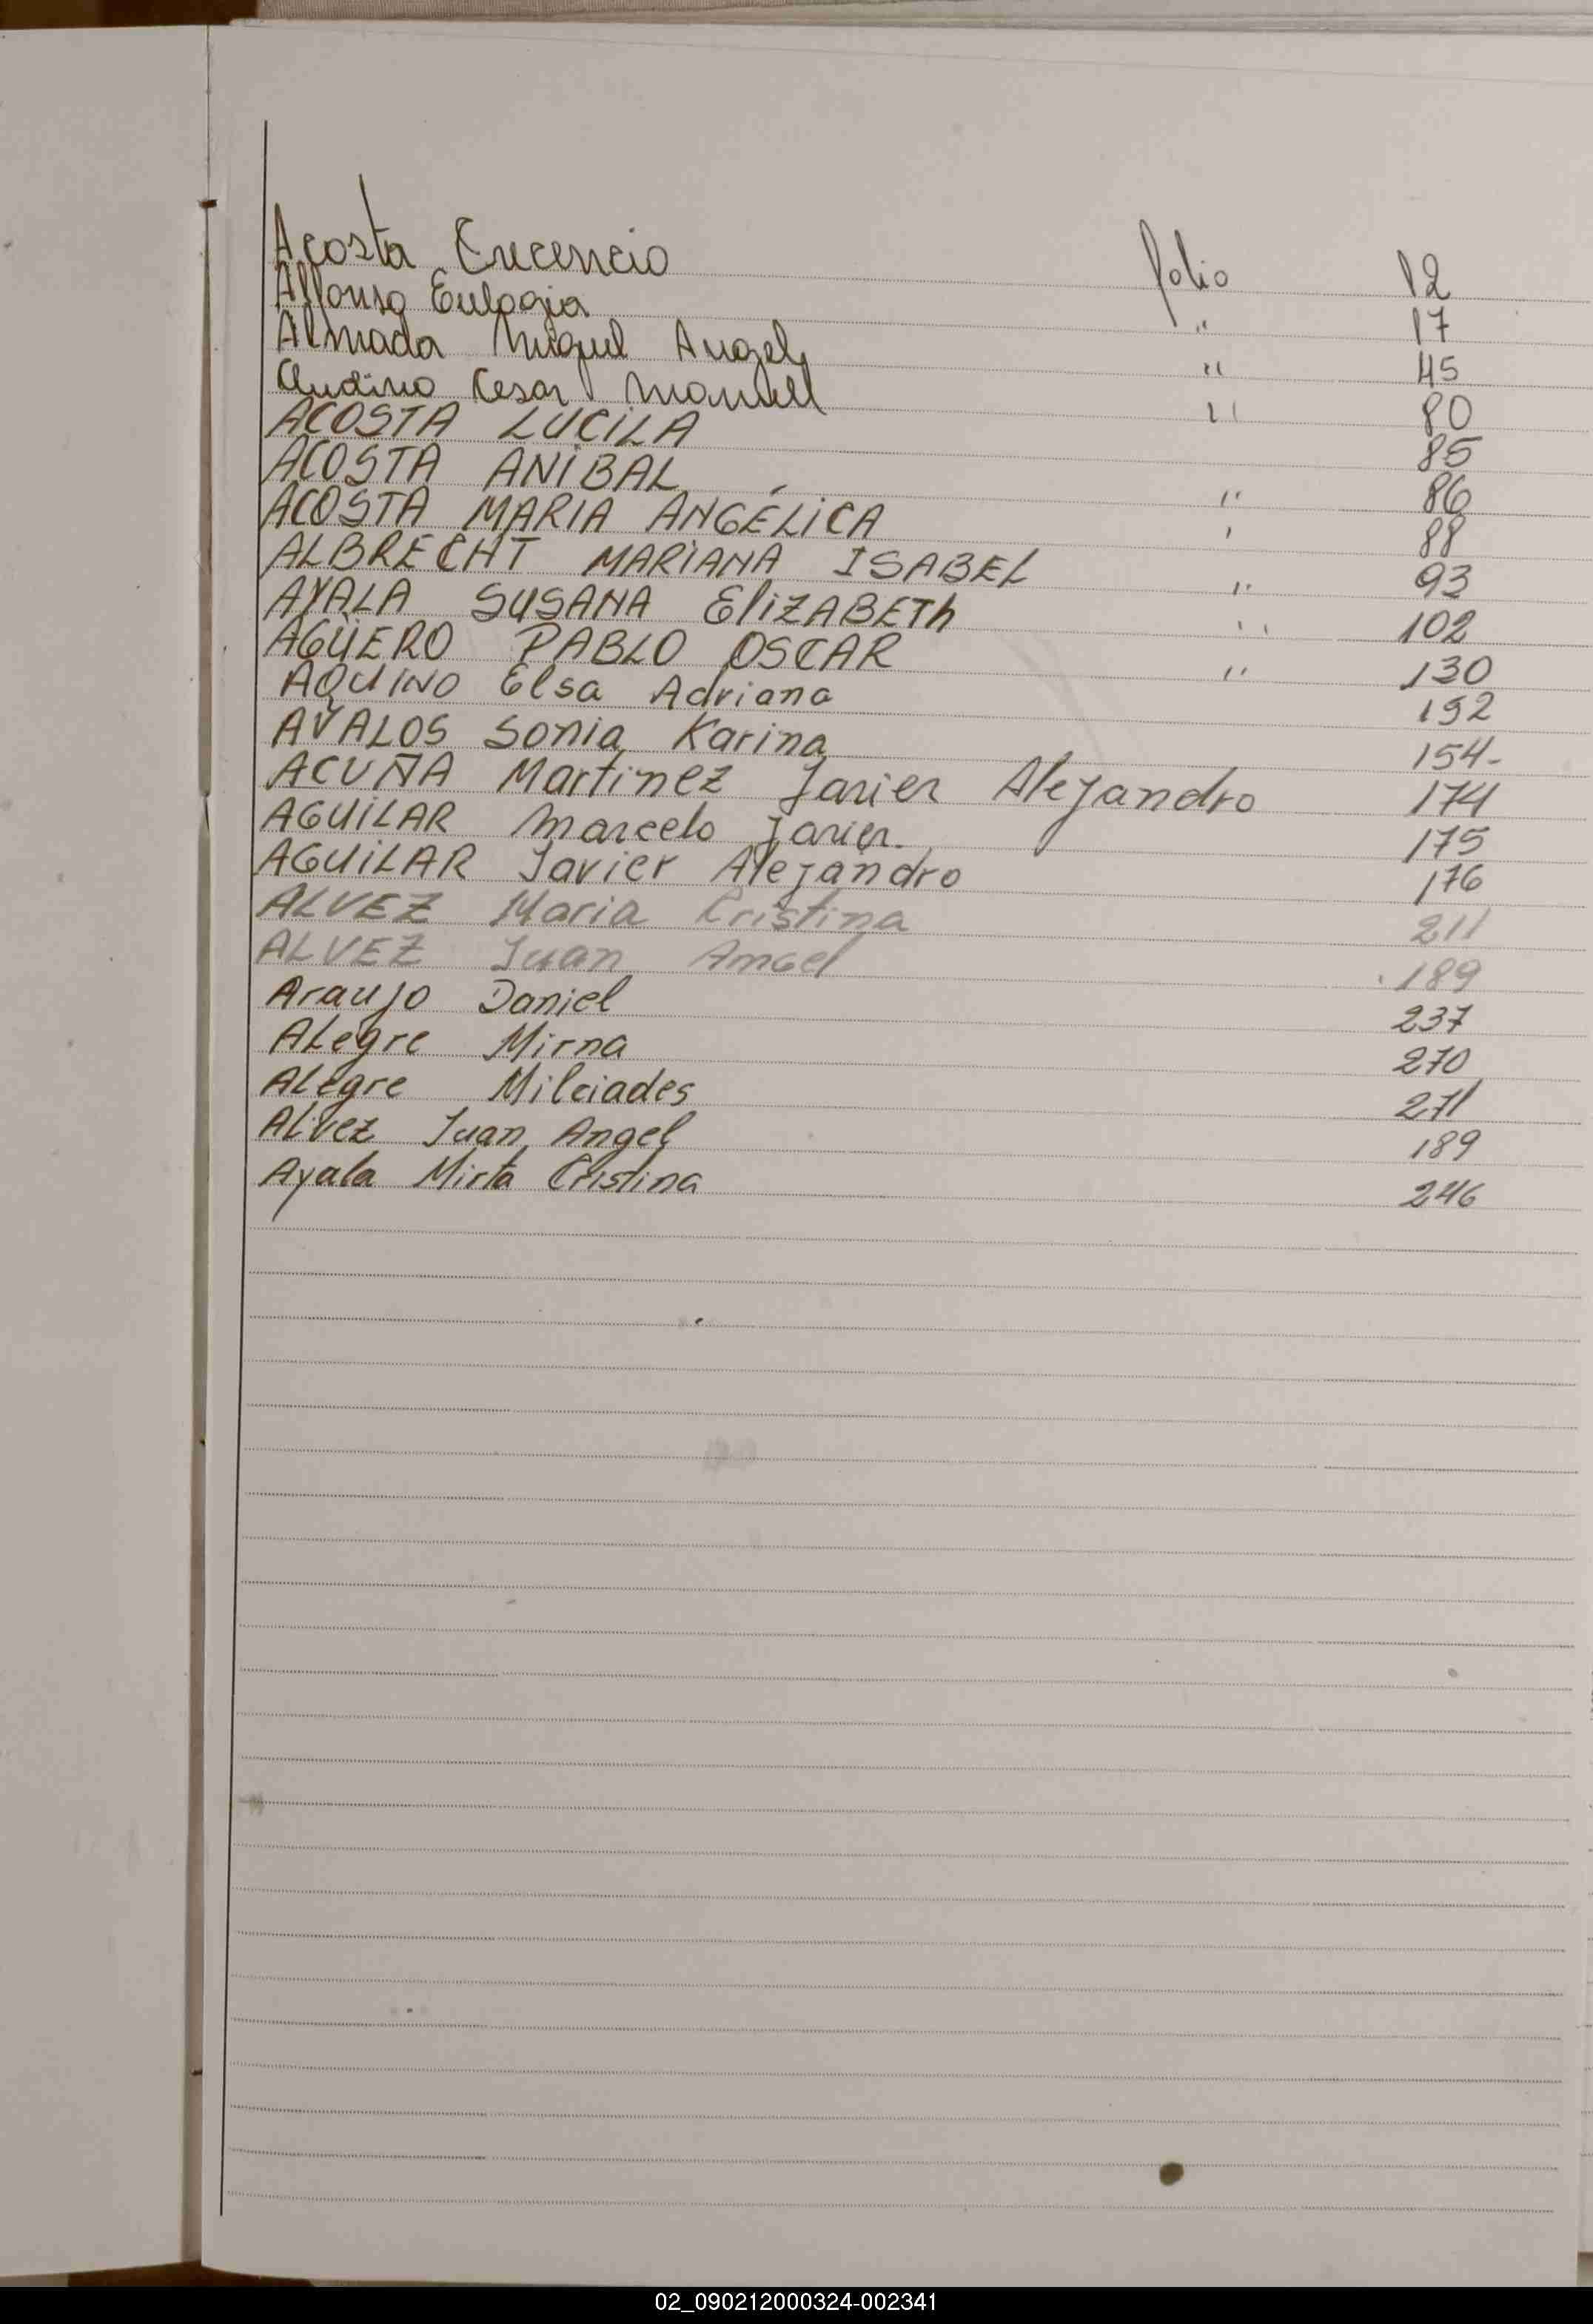 Acosta Crecencio folio 12
Alfonso Eulogia " 17
Almada Miguel Angel " 45
Audino Cesar Manuel " 80
ACOSTA LUCILA 85
ACOSTA ANIBAL " 86
ACOSTA MARIA ANGÉLICA ' 88
ALBRECHT MARIANA ISABEL " 93
AYALA SUSANA ElizABETh " 102
AGÜERO PABLO OSCAR " 130
AQUINO Elsa Adriana 152
AVALOS Sonia Karina 154-
ACUÑA Martinez Javier Alejandro 174
AGUILAR Marcelo Javier. 175
AGUILAR Javier Alejandro 176
ALVEZ Maria Cristina 211
ALVEZ Juan Angel 189
Araujo Daniel 237
Alegre Mirna 270
Alegre Milciades 271
Alvez Juan Angel 189
Ayala Mirta Cristina 246
02_090212000324-002341